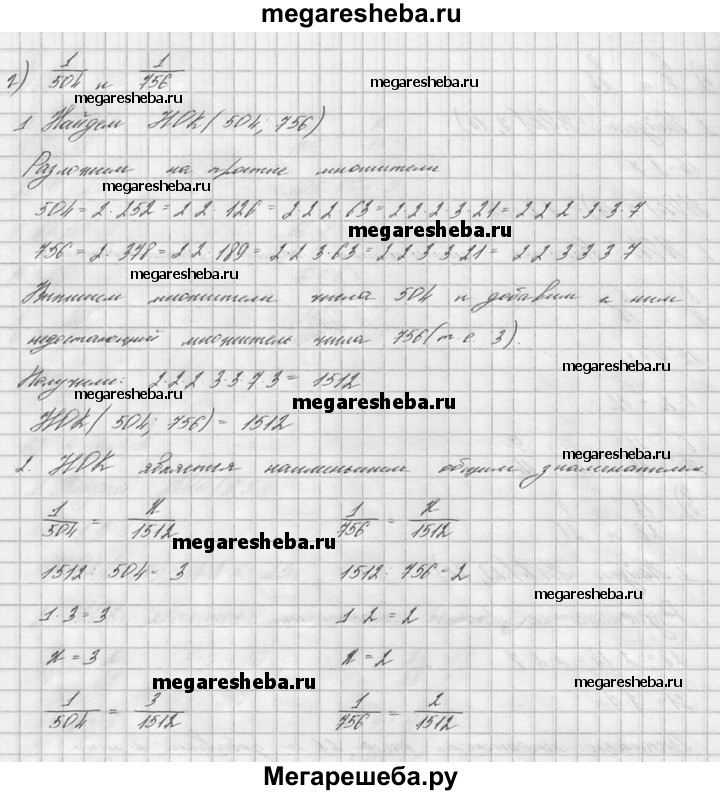 megaresheba.ru
г) 1/504 и 1/756
megaresheba.ru
megaresheba.ru
1 Найдем НОК( 504; 756)
megaresheba.ru
Разложим на простые множители
megaresheba.ru
504 = 2 · 252 = 2 2 · 126 = 2 2 2 63 = 2 2 · 2 3 21 = 2 2 2 3 · 3 · 7
megaresheba.ru
756 = 2 · 378 = 2 2 · 189 = 2 · 2 3 · 63 = 2 · 2 · 3 3 · 21 = 2 2 3 3 3 7
megaresheba.ru
Выпишем множители числа 504 и добавим к ним
недостающий множитель числа 756 (т.е. 3).
megaresheba.ru
Получим: 2 · 2 2 3 · 3 · 7 · 3 = 1512
megaresheba.ru
megaresheba.ru
НОК( 504; 756) = 1512
megaresheba.ru
2. НОК является наименьшим общим знаменателем.
1/504 = x/1512 1/756 = x/1512
megaresheba.ru
megaresheba.ru
1512 : 504 = 3 1512 : 756 = 2
megaresheba.ru
1 · 3 = 3 1 · 2 = 2
x = 3 x = 2
megaresheba.ru
megaresheba.ru
1/504 = 3/1512 1/756 = 2/1512
Мегарешеба.ру